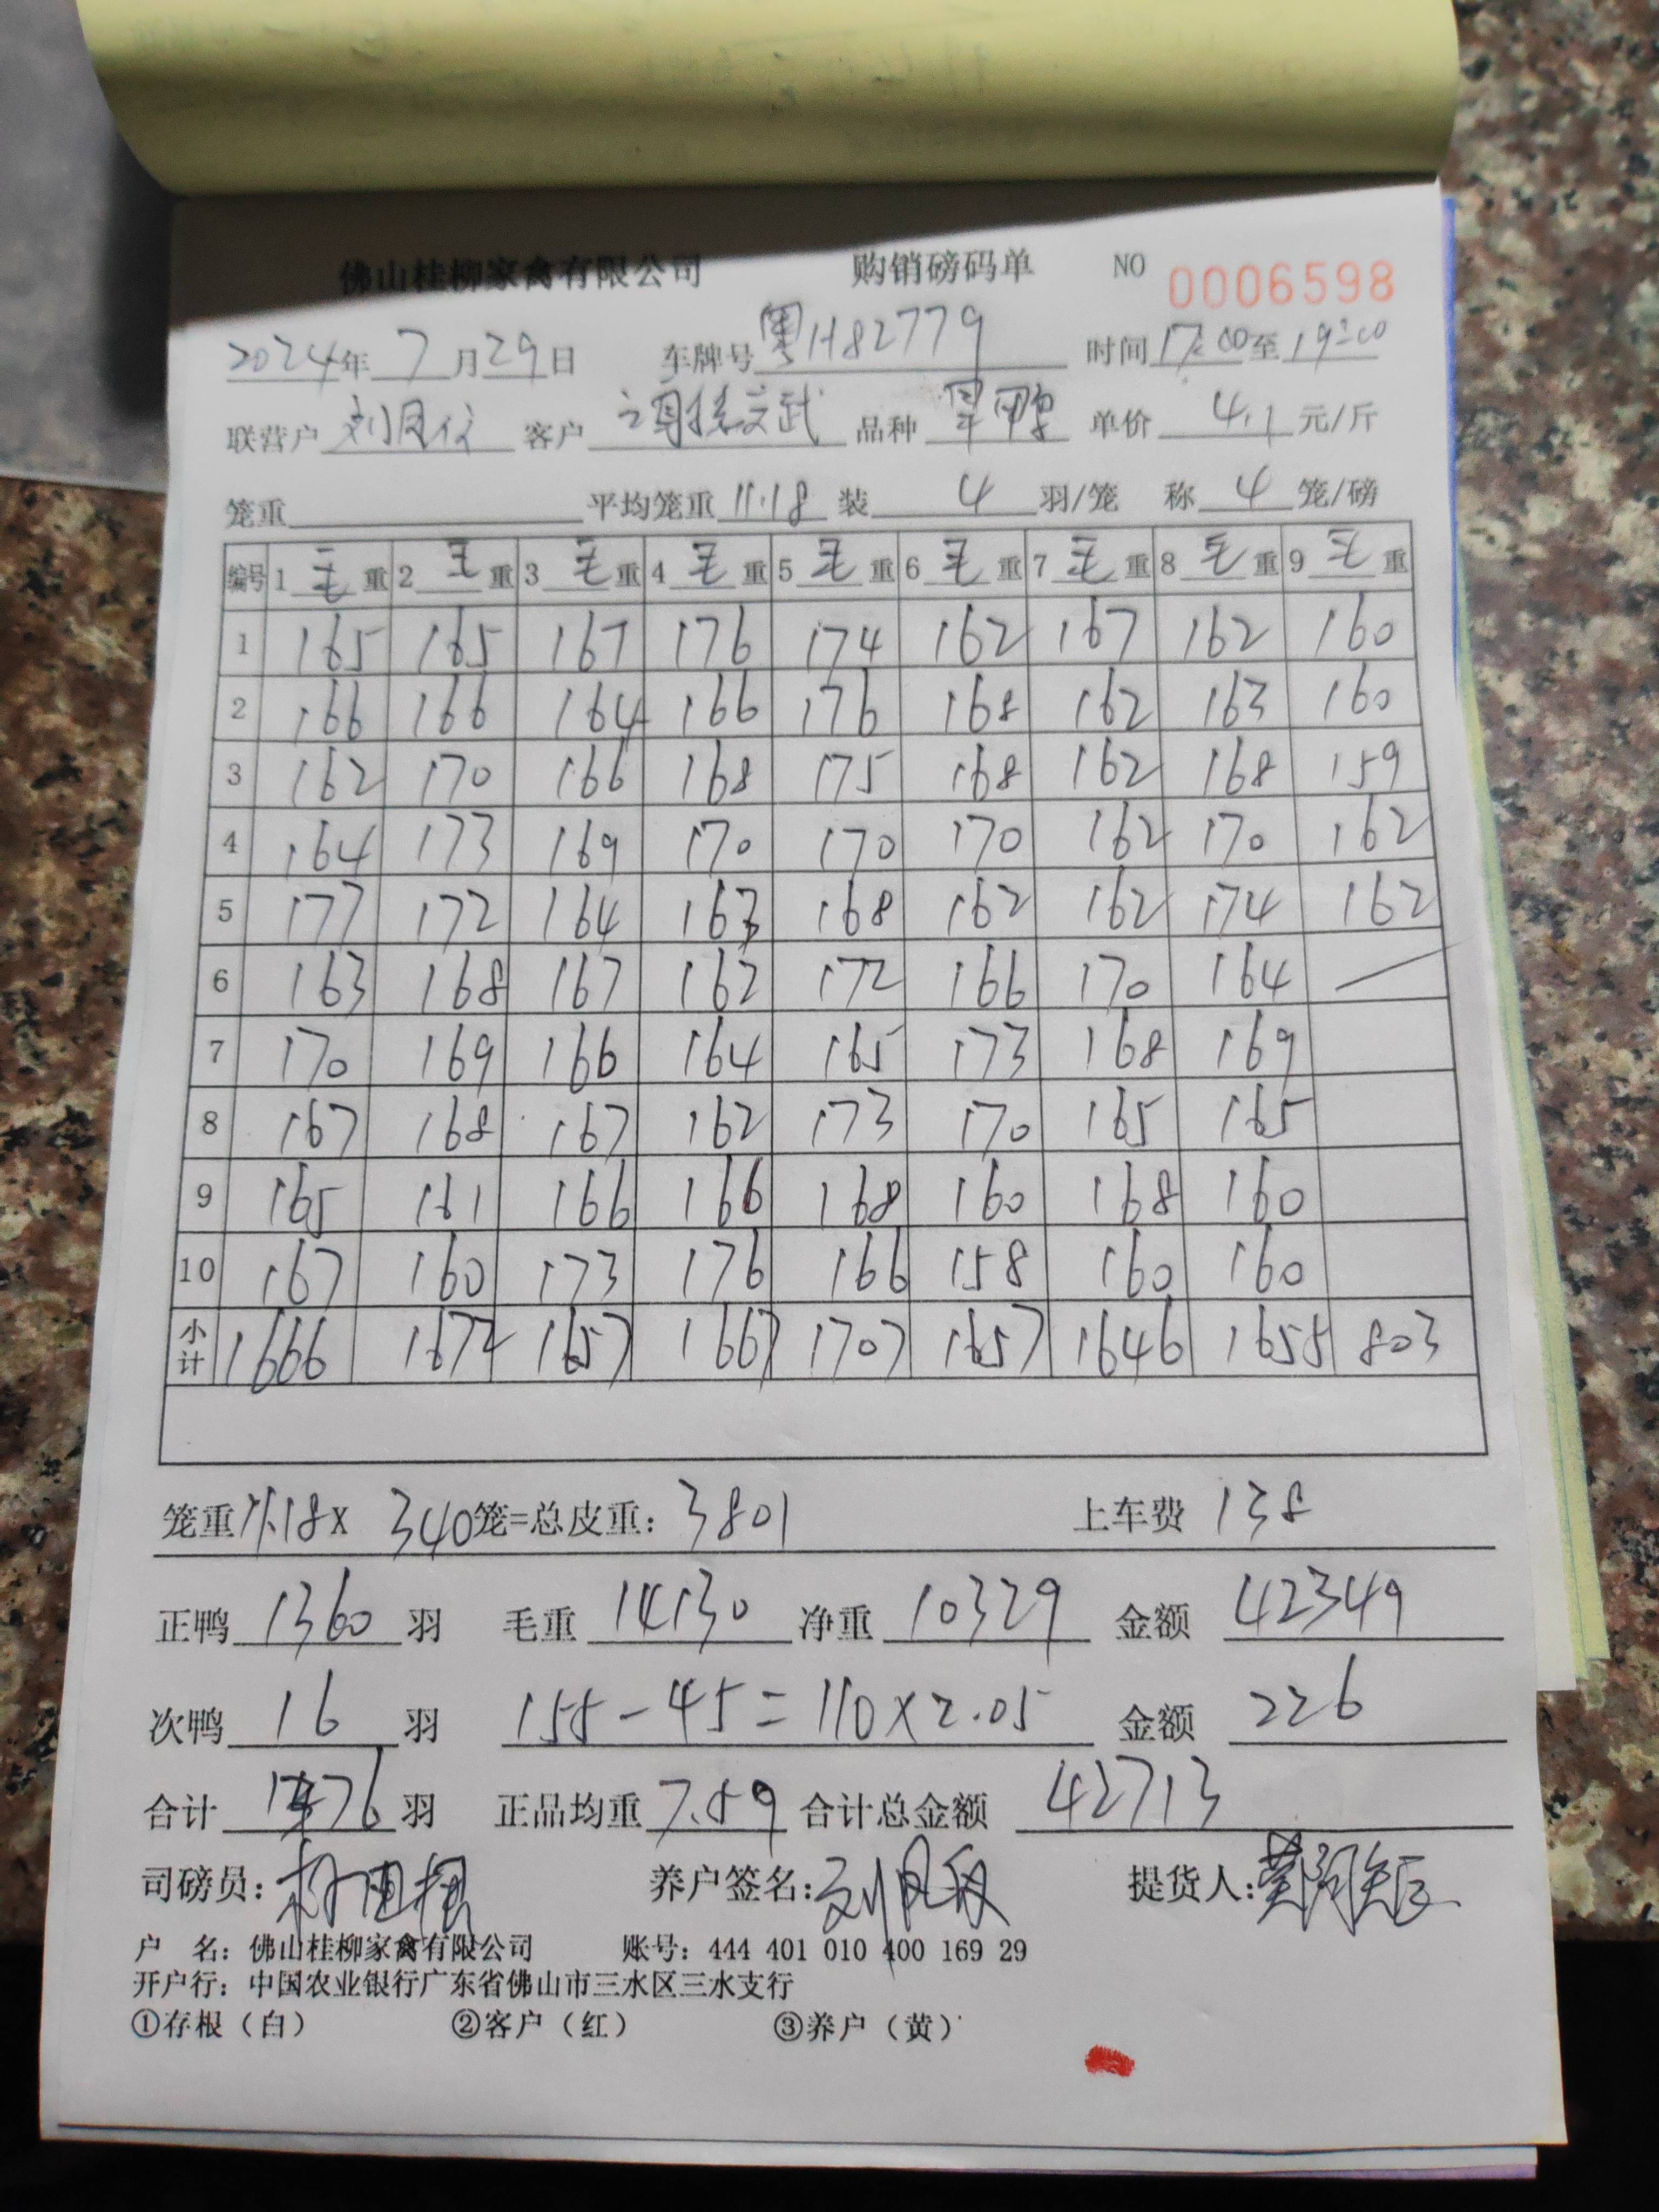 佛山桂柳家禽有限公司 购销磅码单 NO 0006598
2024年 7 月 29 日 车牌号 粤H82779 时间 17:00 至 19:00
联营户 刘 客户 文武 品种 鸭 单价 4.1 元/斤
笼重 平均笼重 11.18 装 4 羽/笼 称 4 笼/磅
编号 1 毛 重 2 毛 重 3 毛 重 4 毛 重 5 毛 重 6 毛 重 7 毛 重 8 毛 重 9 毛 重
1 165 165 167 176 174 162 167 162 160
2 166 166 164 166 176 168 162 163 160
3 162 170 166 168 175 168 162 168 159
4 164 173 169 170 170 170 162 170 162
5 177 172 164 163 168 162 162 174 162
6 163 168 167 162 172 166 170 164
7 170 169 166 164 165 173 168 169
8 167 168 167 162 173 170 165 165
9 165 161 166 166 168 160 168 160
10 167 160 173 176 166 158 160 160
小计 1666 1672 1657 1667 1707 1657 1646 1655 803
笼重 11.18 X 340 笼=总皮重: 3801 上车费 138
正鸭 1360 羽 毛重 14130 净重 10329 金额 42349
次鸭 16 羽 155-45=110×2.05 金额 226
合计 1376 羽 正品均重 7.59 合计总金额 42713
司磅员: 养户签名: 刘 提货人:
户 名: 佛山桂柳家禽有限公司 账号: 444 401 010 400 169 29
开户行: 中国农业银行广东省佛山市三水区三水支行
①存根（白） ②客户（红） ③养户（黄）